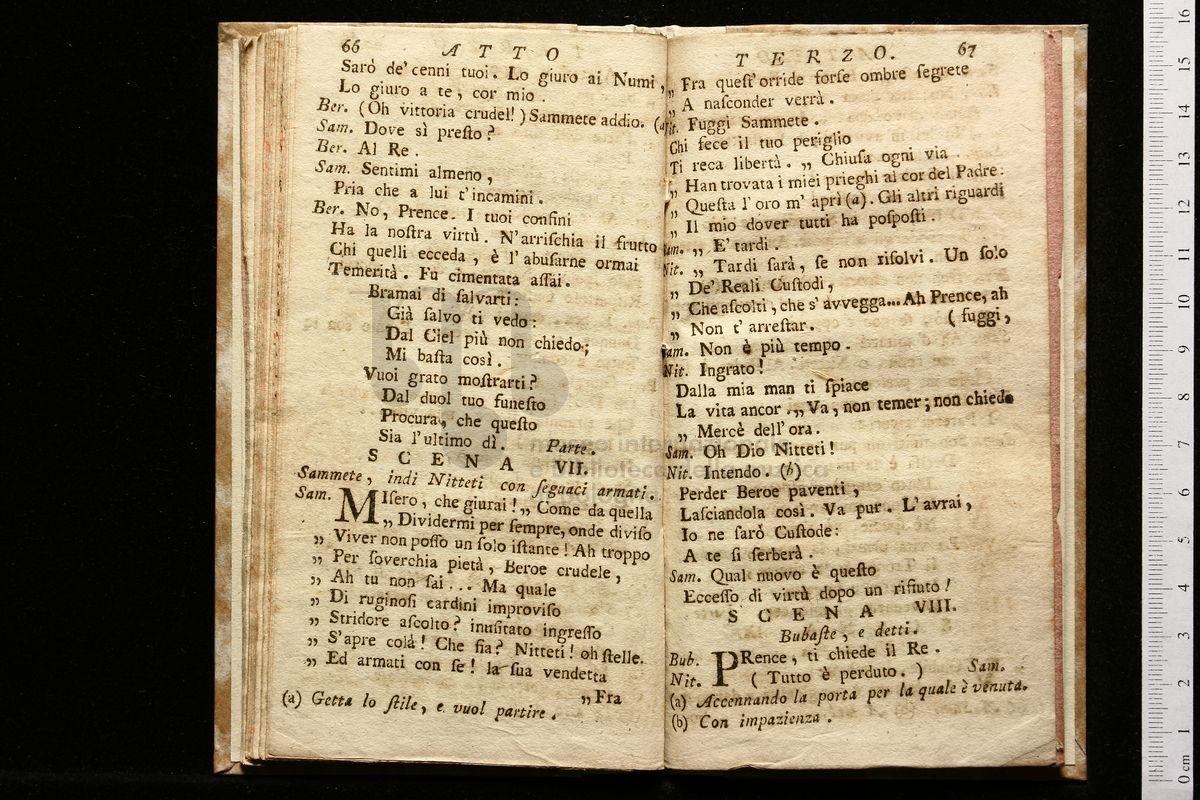 66 ATTO
Sarò de' cenni tuoi. Lo giuro ai Numi,
Lo giuro a te, cor mio.
Ber. (Oh vittoria crudel!) Sammete addio. (a
Sam. Dove sì preſto?
Ber. Al Re.
Sam. Sentimi almeno,
Pria che a lui t'incamini.
Ber. No, Prence. I tuoi confini
Ha la noſtra virtù. N'arriſchia il frutto
Chi quelli ecceda, è l'abuſarne ormai
Temerità. Fu cimentata aſſai.
Bramai di ſalvarti:
Già ſalvo ti vedo:
Dal Ciel più non chiedo;
Mi baſta così.
Vuoi grato moſtrarti?
Dal duol tuo funeſto
Procura, che queſto
Sia l'ultimo dì. Parte.
SCENA VII.
Sammete, indi Nitteti con ſeguaci armati.
Sam. MIſero, che giurai! „ Come da quella
„ Dividermi per ſempre, onde diviſo
„ Viver non poſſo un ſolo iſtante! Ah troppo
„ Per ſoverchia pietà, Beroe crudele,
„ Ah tu non ſai... Ma quale
„ Di ruginoſi cardini improviſo
„ Stridore aſcolto? inuſitato ingreſſo
„ S'apre colà! Che fia? Nitteti! oh ſtelle.
„ Ed armati con ſe! la ſua vendetta
„ Fra
(a) Getta lo ſtile, e vuol partire.
TERZO. 67
„ Fra queſt'orride forſe ombre ſegrete
„ A naſconder verrà.
Nit. Fuggi Sammete.
Chi fece il tuo periglio
Ti reca libertà. „ Chiuſa ogni via
„ Han trovata i miei prieghi al cor del Padre:
„ Queſta l'oro m'aprì (a). Gli altri riguardi
„ Il mio dover tutti ha poſpoſti.
Sam. „ E' tardi.
Nit. „ Tardi ſarà, ſe non riſolvi. Un ſolo
„ De' Reali Cuſtodi,
„ Che aſcolti, che s'avvegga... Ah Prence, ah
„ Non t'arreſtar. (fuggi,
Sam. Non è più tempo.
Nit. Ingrato!
Dalla mia man ti ſpiace
La vita ancor. „ Va, non temer; non chiedo
„ Mercè dell'ora.
Sam. Oh Dio Nitteti!
Nit. Intendo. (b)
Perder Beroe paventi,
Laſciandola così. Va pur. L'avrai,
Io ne ſarò Cuſtode:
A te ſi ſerberà.
Sam. Qual nuovo è queſto
Ecceſſo di virtù dopo un rifiuto!
SCENA VIII.
Bubaſte, e detti.
Bub. PRence, ti chiede il Re.
Nit. (Tutto è perduto.) Sam.
(a) Accennando la porta per la quale è venuta.
(b) Con impazienza.
0 cm 1 2 3 4 5 6 7 8 9 10 11 12 13 14 15 16